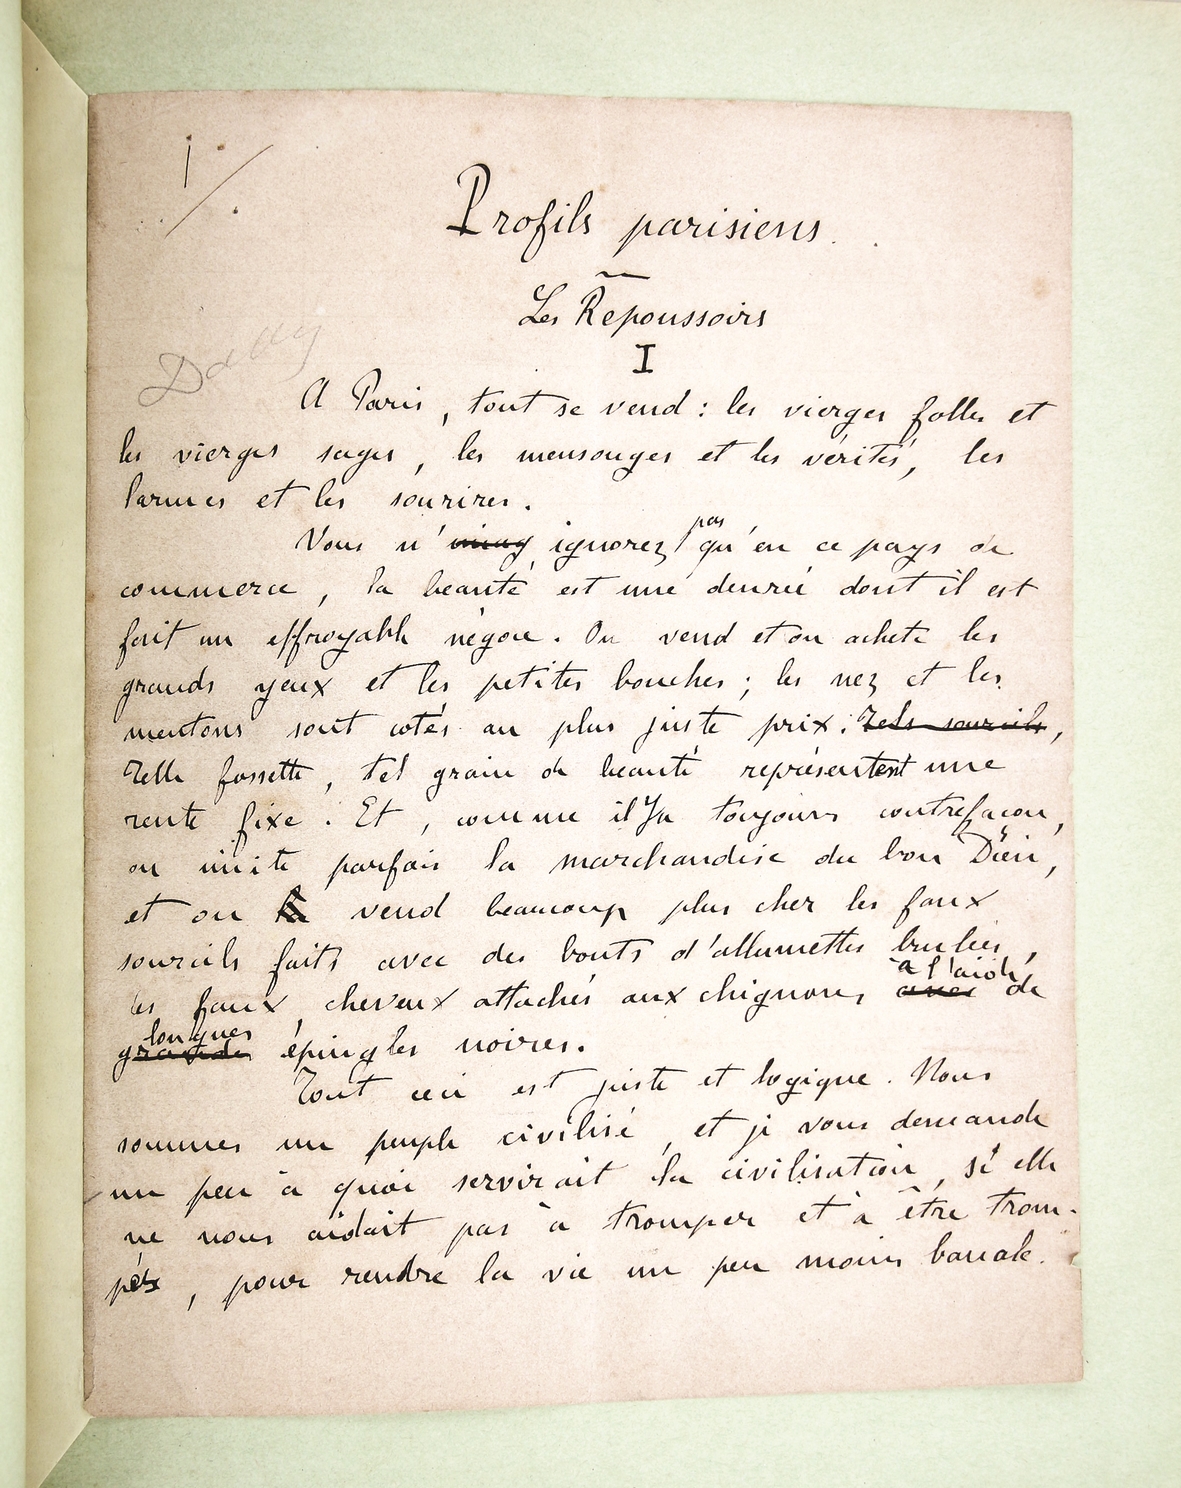 1/.
Profils parisiens.
Les Repoussoirs
I
A Paris, tout se vend : les vierges folles et
les vierges sages, les mensonges et les vérités, les
larmes et les sourires.
Vous n' ignorez pas qu'en ce pays de
commerce, la beauté est une denrée dont il est
fait un effroyable négoce. On vend et on achète les
grands yeux et les petites bouches ; les nez et les
mentons sont cotés au plus juste prix. Tels sourcils,
Telle fossette, tel grain de beauté représentent une
rente fixe. Et, comme il y a toujours contrefaçon,
on imite parfois la marchandise du bon Dieu,
et on la vend beaucoup plus cher les faux
sourcils faits avec des bouts d'allumettes brulées,
les faux cheveux attachés aux chignons avec à l'aide de
grandes longues épingles noires.
Tout ceci est juste et logique. Nous
sommes un peuple civilisé, et je vous demande
un peu à quoi servirait la civilisation, si elle
ne nous aidait pas à tromper et à être trom-
pés, pour rendre la vie un peu moins banale.